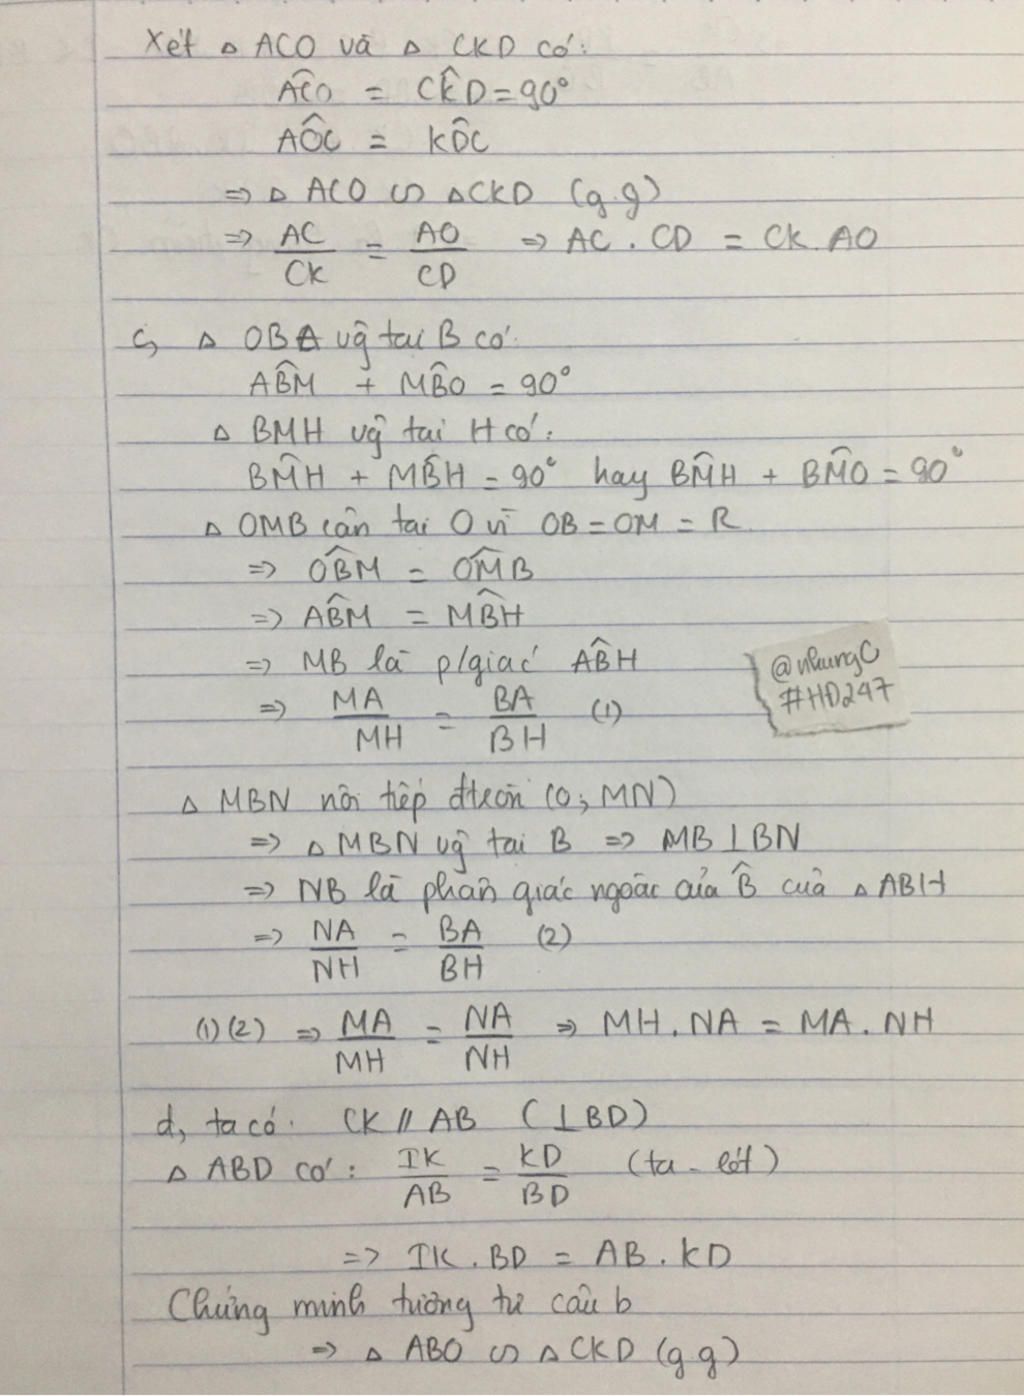 Xét △ ACO và △ CKD có:
AĈO = CK̂D = 90°
AÔC = KD̂C
=> △ ACO ∽ △CKD (g.g)
=> AC/CK = AO/CD => AC . CD = CK . AO
c, △ OBA vg̃ tại B có:
AB̂M + MB̂O = 90°
△ BMH vg̃ tại H có:
BM̂H + MB̂H = 90° hay BM̂H + BM̂O = 90°
△ OMB cân tại O vì OB = OM = R
=> OB̂M = OM̂B
=> AB̂M = MB̂H
=> MB là p/giác AB̂H
=> MA/MH = BA/BH (1)
@nhungC
#HD247
△ MBN nội tiếp đtròn (O; MN)
=> △ MBN vg̃ tại B => MB ⊥ BN
=> NB là phân giác ngoài của B̂ của △ ABH
=> NA/NH = BA/BH (2)
(1)(2) => MA/MH = NA/NH => MH . NA = MA . NH
d, ta có: CK // AB (⊥BD)
△ ABD có: IK/AB = KD/BD (ta-lét)
=> IK . BD = AB . KD
Chứng minh tương tự câu b
=> △ ABO ∽ △ CKD (g g)